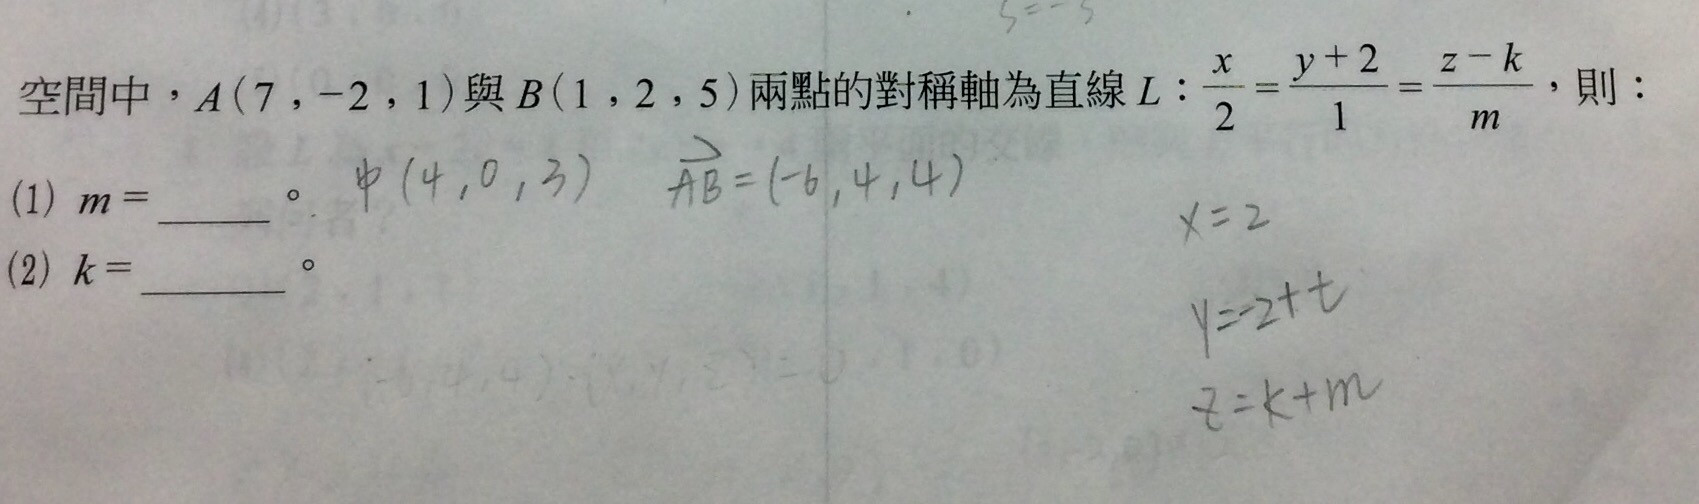 空間中，A(7，-2，1)與B(1，2，5)兩點的對稱軸為直線L：x/2=(y+2)/1=(z-k)/m，則：
(1) m=_____。 中(4,0,3) AB=(-6,4,4)
x=2
(2) k=_____。
y=-2+t
z=k+m